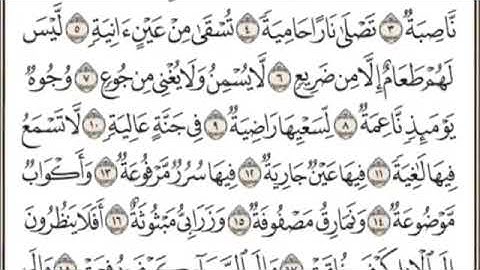 نَّاصِبَةٌ ٣ تَصْلَىٰ نَارًا حَامِيَةً ٤ تُسْقَىٰ مِنْ عَيْنٍ ءَانِيَةٍ ٥ لَّيْسَ
لَهُمْ طَعَامٌ إِلَّا مِن ضَرِيعٍ ٦ لَّا يُسْمِنُ وَلَا يُغْنِى مِن جُوعٍ ٧ وُجُوهٌ
يَوْمَئِذٍ نَّاعِمَةٌ ٨ لِّسَعْيِهَا رَاضِيَةٌ ٩ فِى جَنَّةٍ عَالِيَةٍ ١٠ لَّا تَسْمَعُ
فِيهَا لَٰغِيَةً ١١ فِيهَا عَيْنٌ جَارِيَةٌ ١٢ فِيهَا سُرُرٌ مَّرْفُوعَةٌ ١٣ وَأَكْوَابٌ
مَّوْضُوعَةٌ ١٤ وَنَمَارِقُ مَصْفُوفَةٌ ١٥ وَزَرَابِىُّ مَبْثُوثَةٌ ١٦ أَفَلَا يَنظُرُونَ
إِلَى ٱلْإِبِلِ كَيْفَ خُلِقَتْ ١٧ وَإِلَى ٱلسَّمَآءِ كَيْفَ رُفِعَتْ ١٨ وَإِلَى